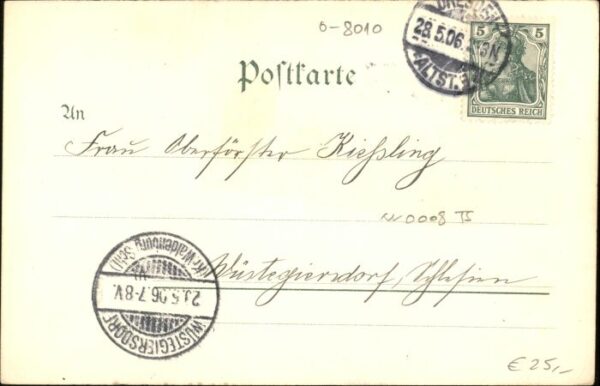 0-8010
DRESDEN
28.5.06.
ALTST.
5 5
DEUTSCHES REICH
Postkarte
An
Frau Oberförster Kießling
W0008 TS
Wüstegiersdorf, Schlesien
WÜSTEGIERSDORF
5.06.7-8V.
(Kr. Waldenburg Schl.)
€ 25,-